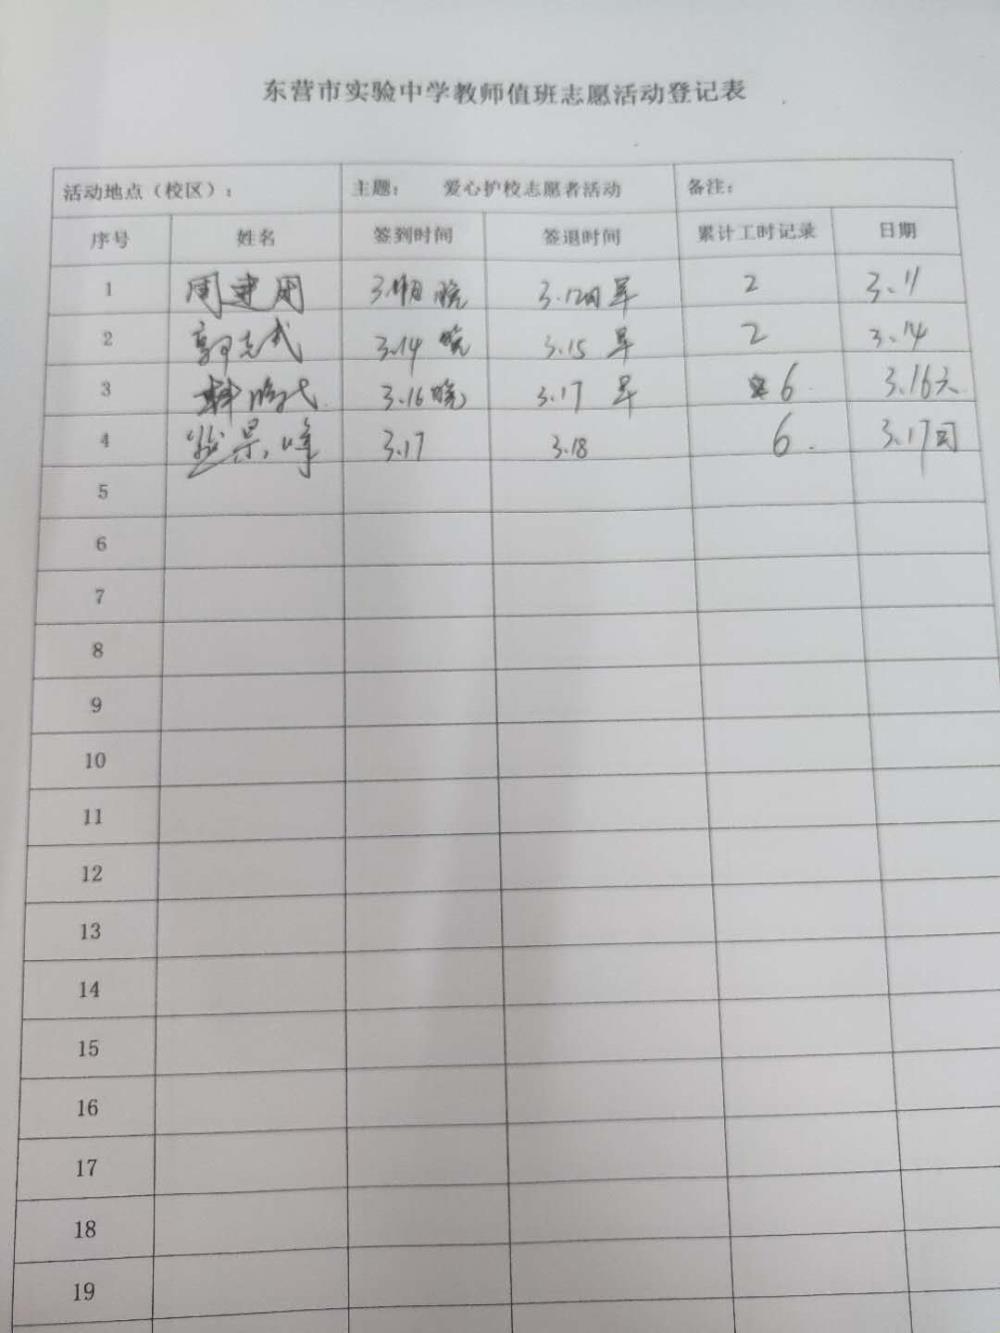 东营市实验中学教师值班志愿活动登记表
活动地点（校区）： 主题： 爱心护校志愿者活动 备注：
序号 姓名 签到时间 签退时间 累计工时记录 日期
1 周建国 晚 3.12 早 2 3.11
2 郭志武 3.14 晚 3.15 早 2 3.14
3 3.16 晚 3.17 早 6 3.16
4 3.17 3.18 6. 3.17
5
6
7
8
9
10
11
12
13
14
15
16
17
18
19